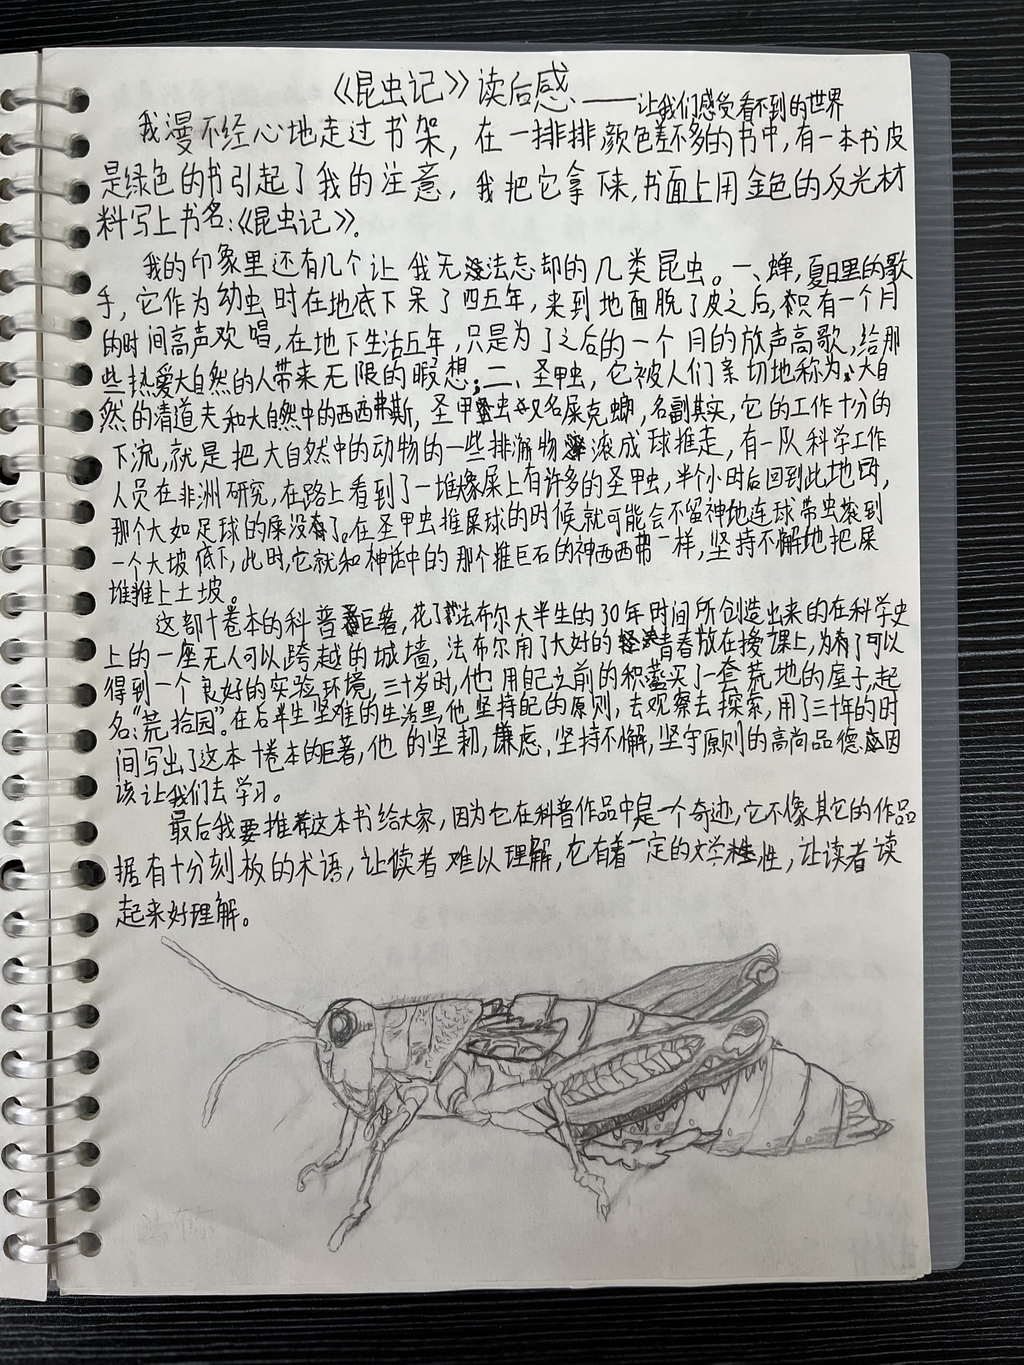 《昆虫记》读后感
——让我们感受看不到的世界
我漫不经心地走过书架，在一排排颜色差不多的书中，有一本书皮
是绿色的书引起了我的注意，我把它拿下来，书面上用金色的反光材
料写上书名：《昆虫记》。
我的印象里还有几个让我无法忘却的几类昆虫。一、蝉，夏日里的歌
手，它作为幼虫时在地底下呆了四五年，来到地面脱了皮之后，只有一个月
的时间高声欢唱，在地下生活五年，只是为了之后的一个月的放声高歌，给那
些热爱大自然的人带来无限的暇想；二、圣甲虫，它被人们亲切地称为大自
然的清道夫和大自然中的西西弗斯，圣甲虫又名屎克螂，名副其实，它的工作十分的
下流，就是把大自然中的动物的一些排泄物滚成球推走，有一队科学工作
人员在非洲研究，在路上看到了一堆像屎上有许多的圣甲虫，半个小时后回到此地时，
那个大如足球的屎没有了。在圣甲虫推屎球的时候就可能会不留神地连球带虫滚到
一个大坡底下，此时，它就和神话中的那个推巨石的神西西弗一样，坚持不懈地把屎
堆推上土坡。
这部十卷本的科普巨著，花了法布尔大半生的30年时间所创造出来的在科学史
上的一座无人可以跨越的城墙，法布尔用了大好的青春放在授课上，为了可以
得到一个良好的实验环境，三十岁时，他用自己之前的积蓄买了一套荒地的屋子，起
名：“荒拾园”。在后半生坚难的生活里，他坚持自己的原则，去观察去探索，用了三十年的时
间写出了这本十卷本的巨著，他的坚韧，谦虑，坚持不懈，坚守原则的高尚品德应因
该让我们去学习。
最后我要推荐这本书给大家，因为它在科普作品中是一个奇迹，它不像其它的作品
据有十分刻板的术语，让读者难以理解，它有着一定的文学性，让读者读
起来好理解。
法布尔